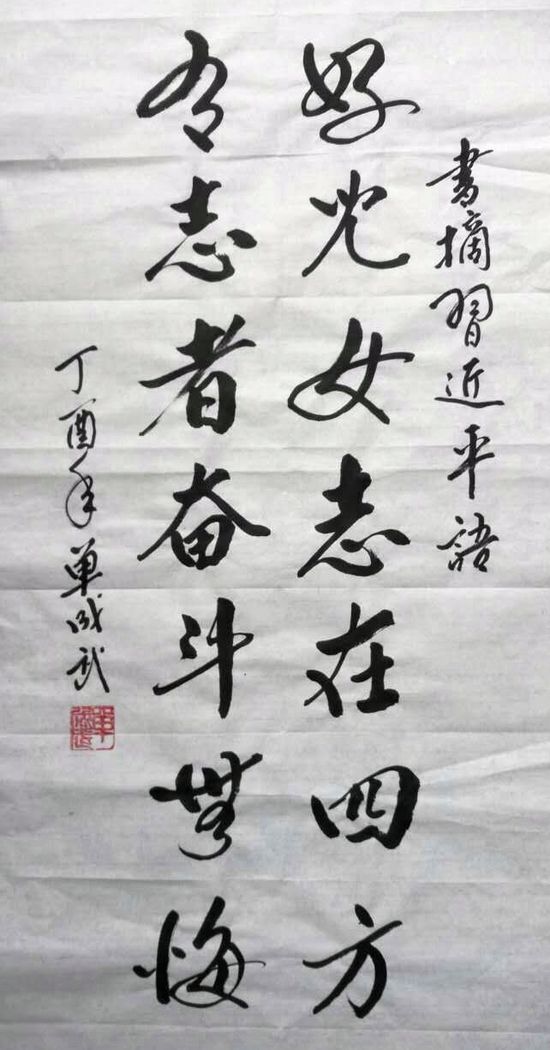 書摘習近平語
好儿女志在四方
有志者奋斗無悔
丁酉年 单成武